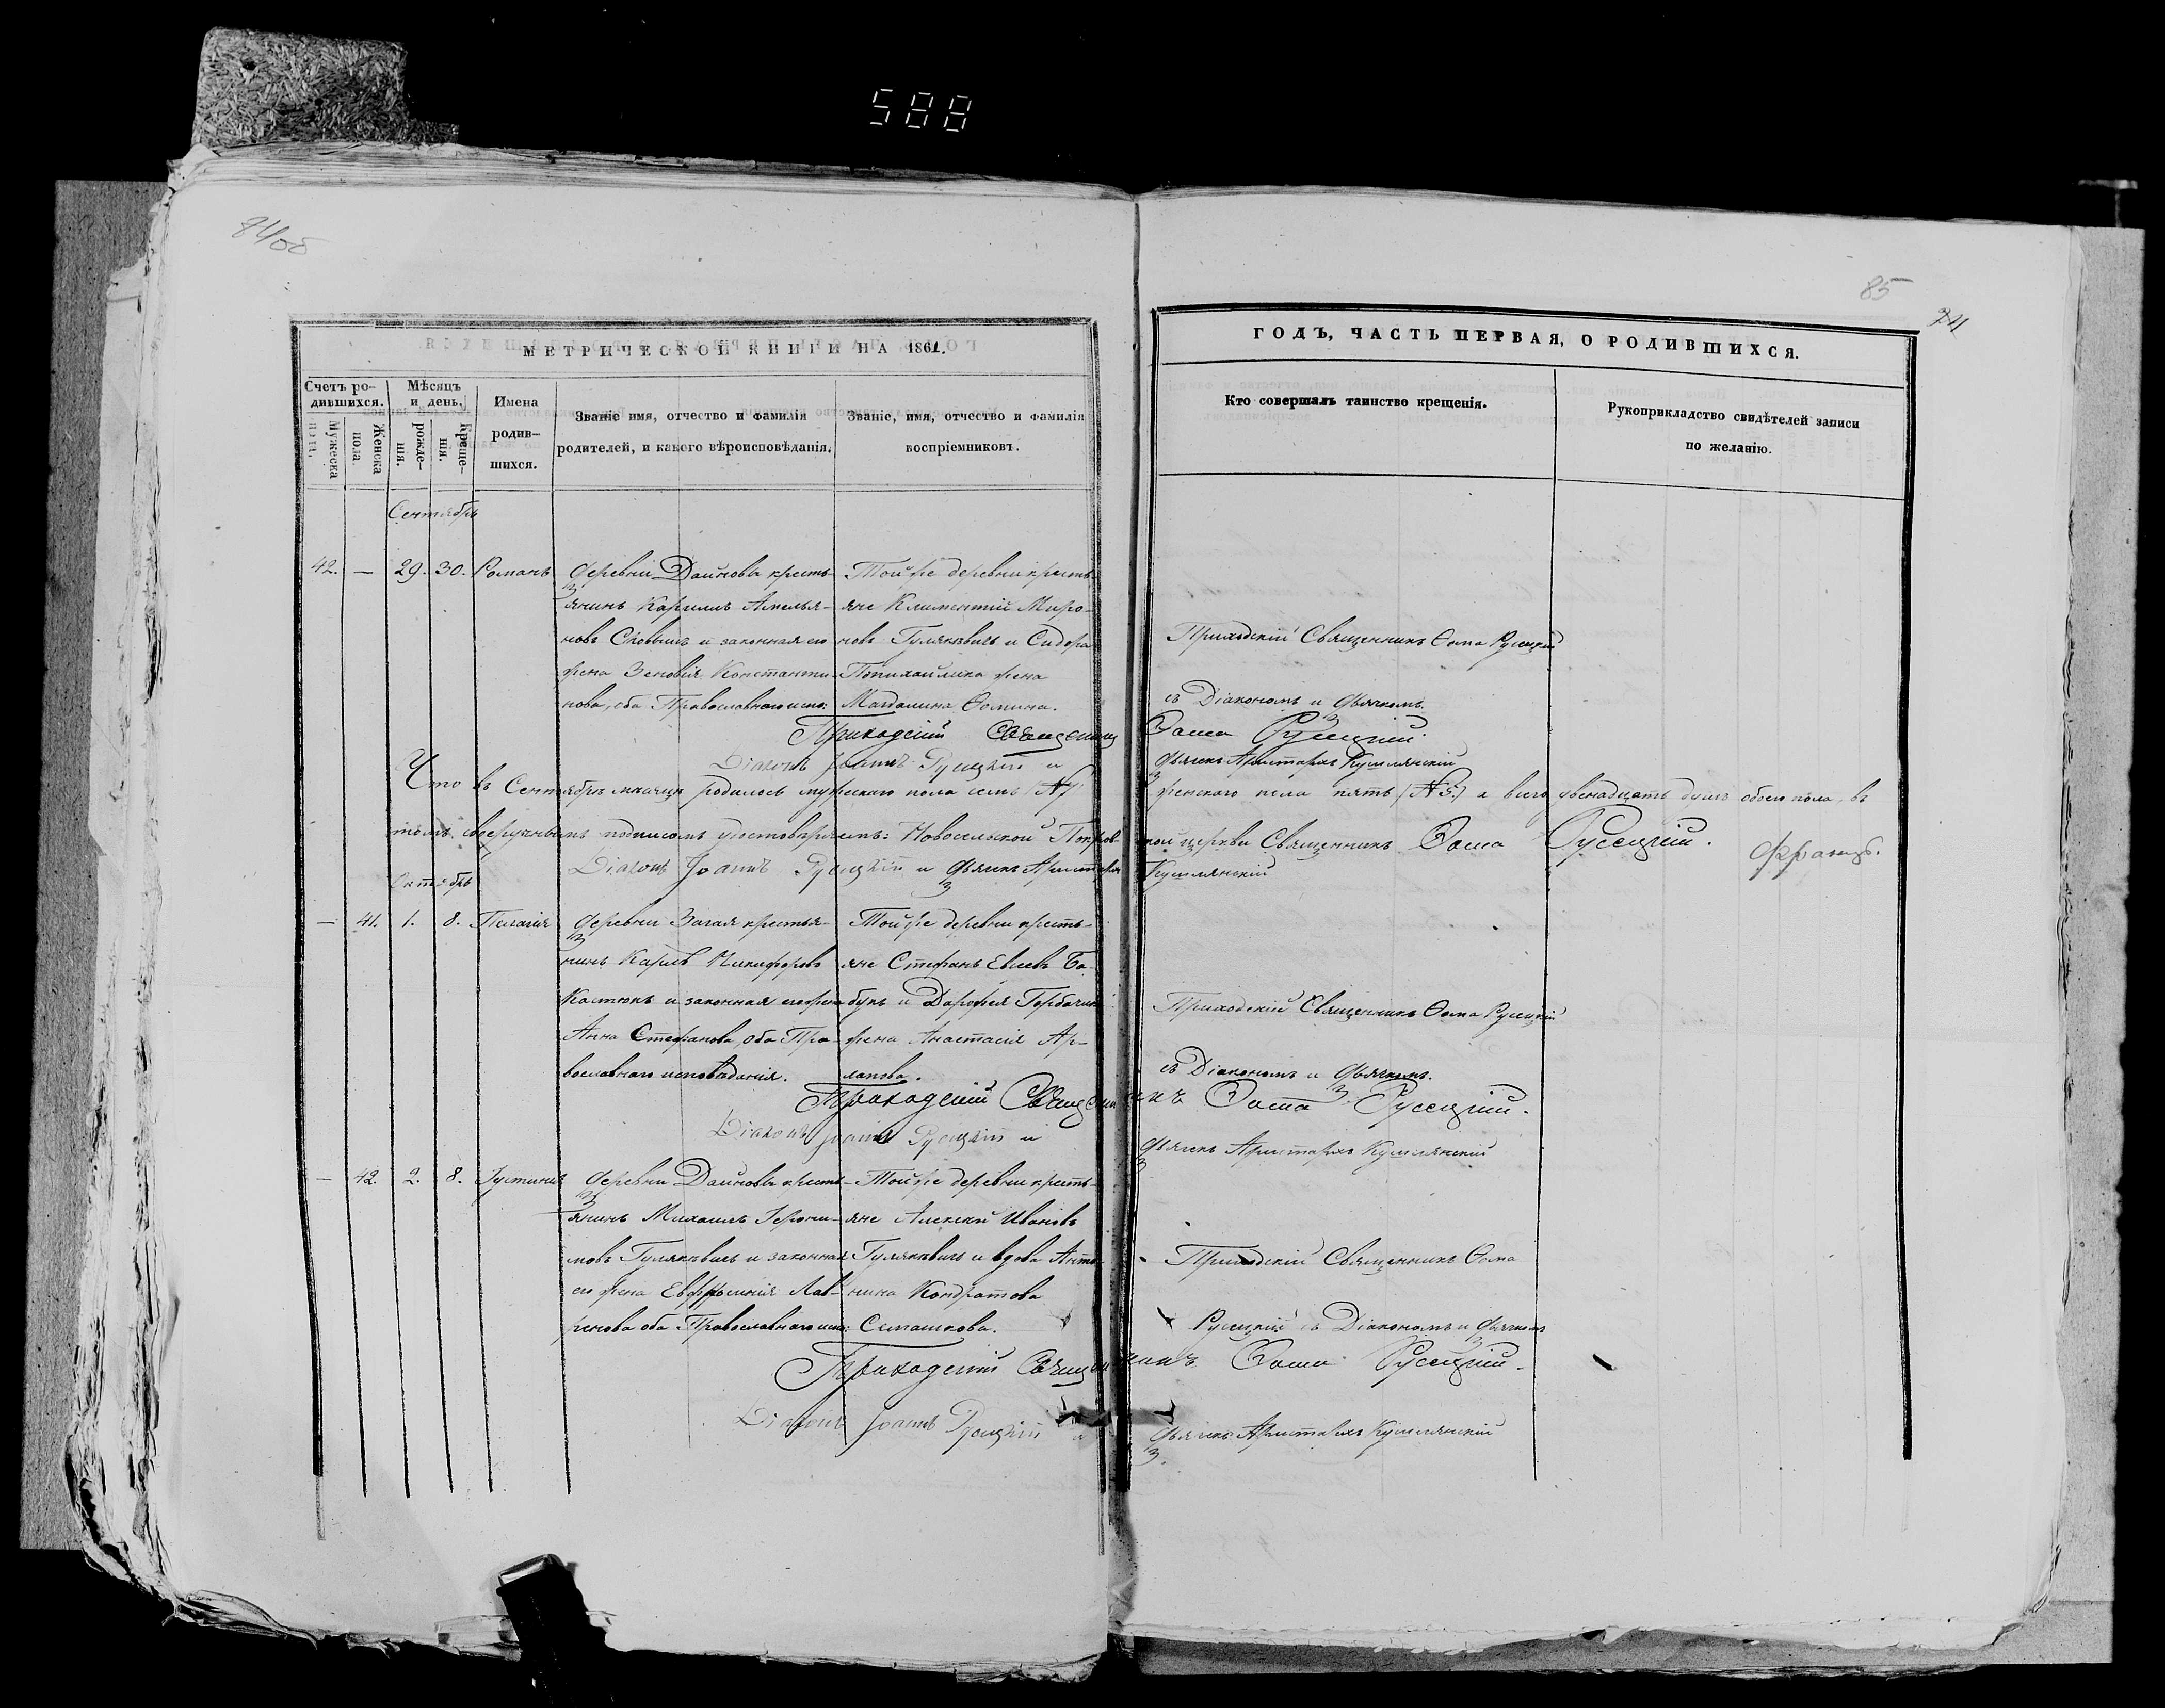 588
84об
85
24
МЕТРИЧЕСКОЙ КНИГИ НА 1861.
ГОДЪ, ЧАСТЬ ПЕРВАЯ, О РОДИВШИХСЯ.
Счетъ ро-
дившихся.
Мужеска
пола.
Женска
пола.
Мѣсяцъ
и день.
рожде-
нія.
Креще-
нія.
Имена
родив-
шихся.
Званіе имя, отчество и фамилія
родителей, и какого вѣроисповѣданія.
Званіе, имя, отчество и фамилія
воспріемниковъ.
Кто совершалъ таинство крещенія.
Рукоприкладство свидѣтелей записи
по желанію.
Сентябрь
42. — 29. 30. Романъ
деревни Дайновы кресть-
янинъ Кариллъ Амелья-
новъ и законная его
жена Зеновія Константи-
нова, оба Православнаго испо:
Той же деревни кресть-
яне Климентій Миро-
новъ Гулякѣвичъ и Сидора
жена
Магдалина Ѳомина.
Приходскій Священникъ Ѳома Русецкій
съ Діакономъ и Дьячкомъ.
Приходскій Священникъ Ѳома Русецкій.
Діаконъ Іоаннъ Русецкій и Дьячекъ Аристархъ Кушлянскій
Что въ Сентябрѣ мѣсяцѣ родилось мужескаго пола семь (№ 7 женскаго пола пять (№ 5.) а всего двенадцать душъ обоего пола, въ
томъ своеручнымъ подписомъ удостовѣряемъ: Новосельской Покровской церкви Священникъ Ѳома Русецкій.
Діаконъ Іоаннъ Русецкій и Дьячекъ Аристархъ Кушлянскій
Октябрь
— 41. 1. 8. Пелагія
деревни Загая крестья-
нинъ Карпъ Никифоровъ
Костюкъ и законная его жена
Анна Стефанова, оба Пра-
вославнаго исповѣданія.
Той же деревни кресть-
яне Стефанъ Евсеевъ Ба-
букъ и Дарофея
жена Анастасія Ар-
лапова.
Приходскій Священникъ Ѳома Русецкій
съ Діакономъ и Дьячкомъ.
Приходскій Священникъ Ѳома Русецкій.
Діаконъ Іоаннъ Русецкій и
Дьячекъ Аристархъ Кушлянскій
— 42. 2. 8. Іустинія
деревни Дайновы кресть-
янинъ Михаилъ Іерони-
мовъ Гулякѣвичъ и законная
его жена Евфросинія Лав-
ренова оба Православнаго испо:
Той же деревни кресть-
яне Алексѣй Ивановъ
Гулякѣвичъ и вдова Анто-
нина Кондратова
Семашкова.
Приходскій Священникъ Ѳома
Русецкій съ Діакономъ и Дьячкомъ
Приходскій Священникъ Ѳома Русецкій.
Діаконъ Іоаннъ Русецкій и
Дьячекъ Аристархъ Кушлянскій